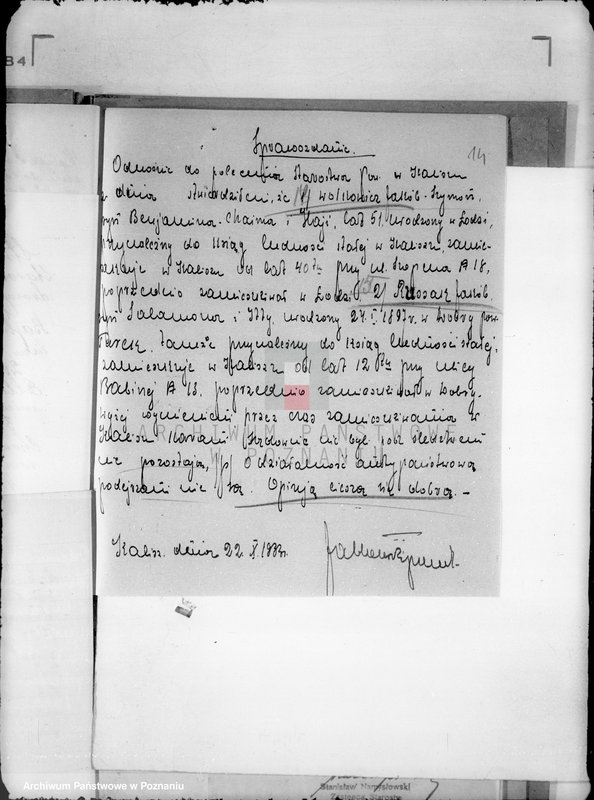 84
Sprawozdanie.
14
Odnośnie do polecenia Starostwa Pow. w Kaliszu
z dnia stwierdziłem, że 1/ Wołkowicz Jakób-Szymon,
syn Benjamina-Chaima i Haji, lat 51, urodzony w Łodzi,
przynależny do ksiąg ludności stałej w Kaliszu, zamie-
szkuje w Kaliszu od lat 40tu przy ul. Szopena № 18,
poprzednio zamieszkiwał w Łodzi, 15 2/ Jakób,
syn Salamona i Itty, urodzony 27.I.1897r. w Dobry pow.
Turek, tamże przynależny do ksiąg ludności stałej,
zamieszkuje w Kaliszu od lat 12tu przy ulicy
Babinej № 13. poprzednio zamieszkiwał w Dobry.
Wyżej wymienieni przez czas zamieszkiwania w
Kaliszu karani sądownie nie byli, pod śledztwem
nie pozostają, o działalność antypaństwową
podejrzani nie są. Opinją cieszą się dobrą. –
Kalisz, dnia 22.X.1933r.
ARCHIWUM PAŃSTWOWE
W POZNANIU
Archiwum Państwowe w Poznaniu
Stanisław Namysłowski
Zastępca Starosty